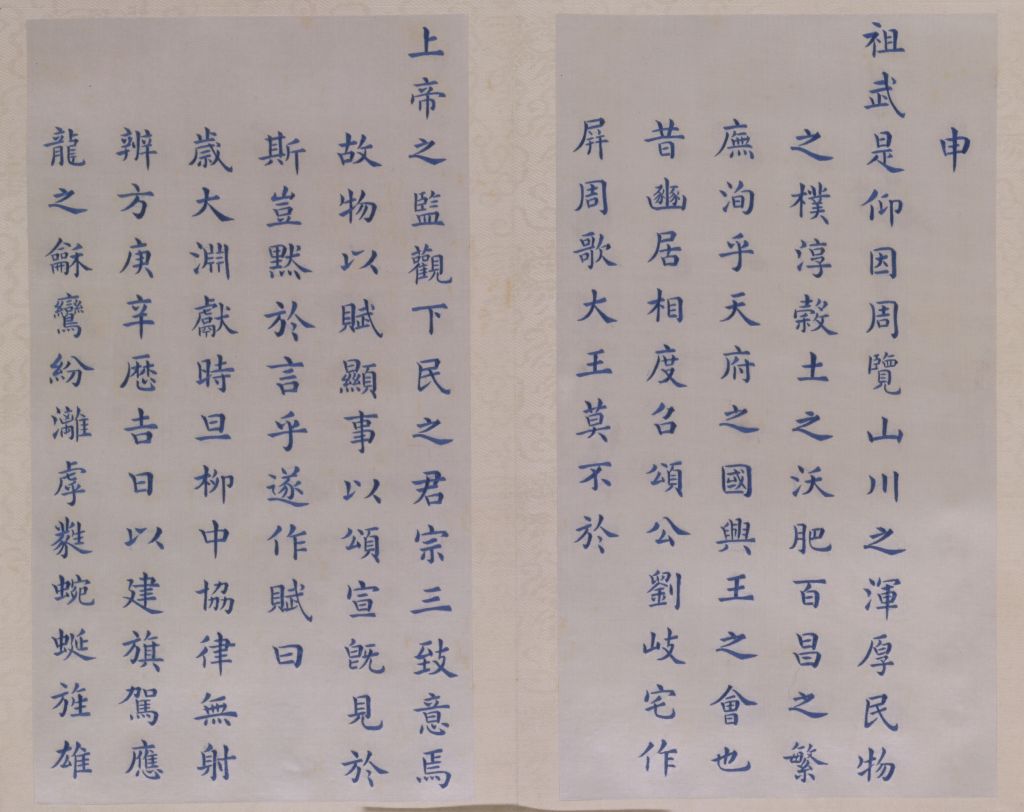 申
祖武是仰因周覽山川之渾厚民物
之樸淳穀土之沃肥百昌之繁
廡洵乎天府之國興王之會也
昔豳居相度召頌公劉岐宅作
屛周歌大王莫不於
上帝之監觀下民之君宗三致意焉
故物以賦顯事以頌宣旣見於
斯豈默於言乎遂作賦曰
歲大淵獻時旦柳中協律無射
辨方庚辛厯吉日以建旗駕應
龍之龢鸞紛灕虖㲪蜿蜒旌雄